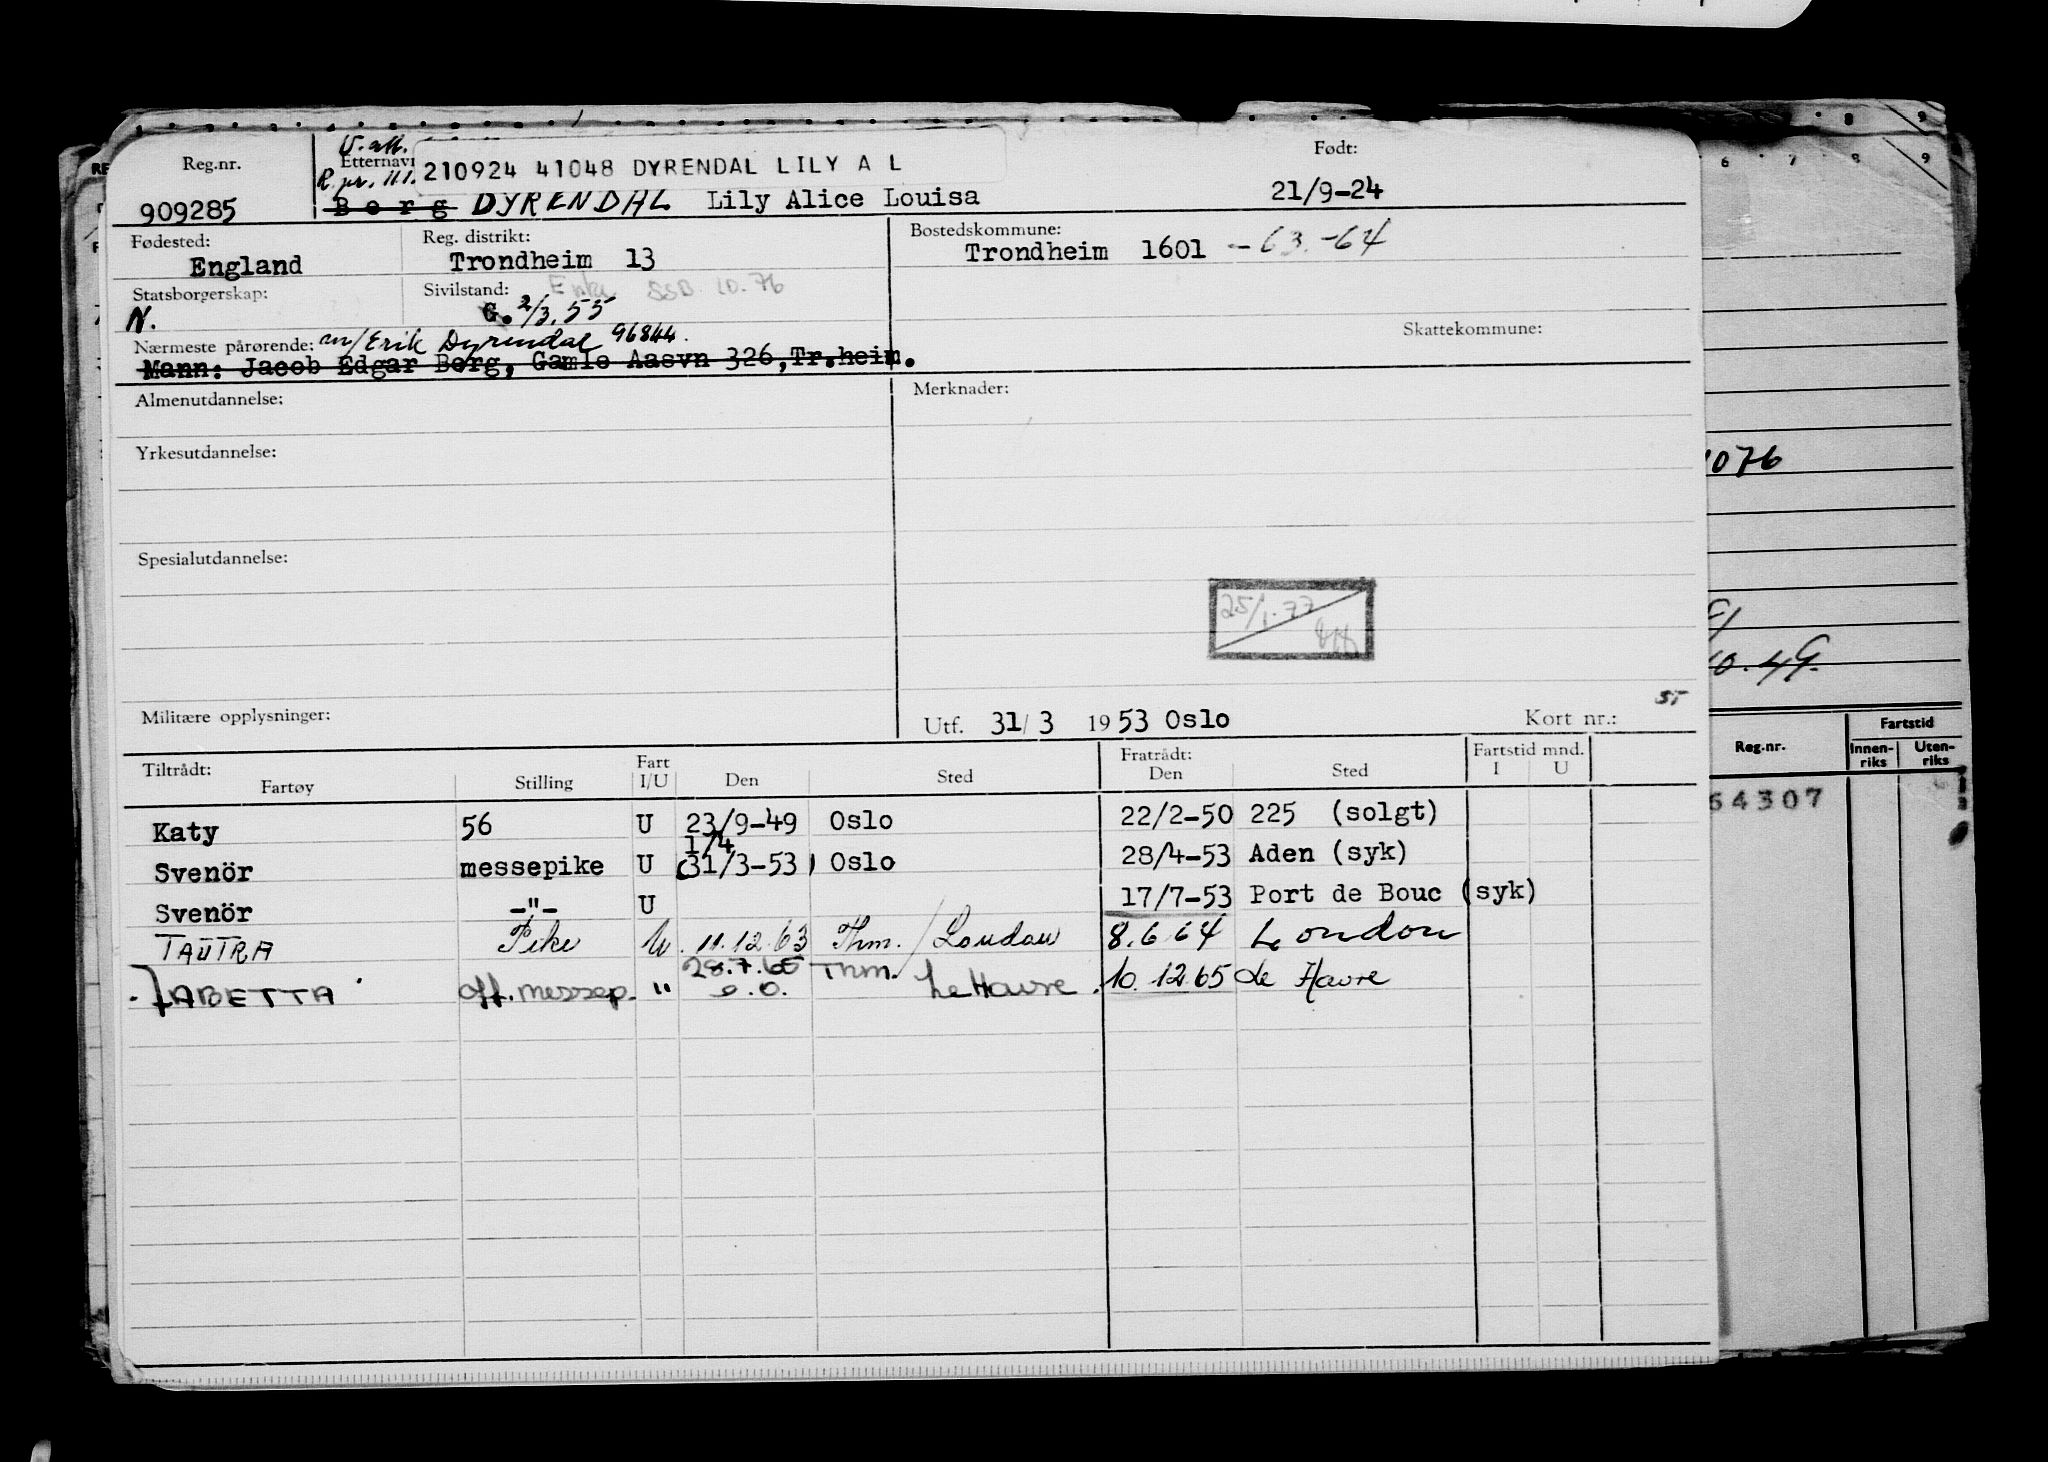 Reg.nr.
Etternavn
Født:
R.pr. 111.
210924 41048 DYRENDAL LILY A L
909285
Berg DYRENDAL Lily Alice Louisa
21/9-24
Fødested:
England
Reg. distrikt:
Trondheim 13
Bostedskommune:
Trondheim 1601 - 63.-64
Statsborgerskap:
N.
Sivilstand:
Enke SSB 10.76
G. 2/3.55
Skattekommune:
Nærmeste pårørende: m/Erik Dyrendal 96844.
Mann: Jacob Edgar Berg, Gamle Aasvn 326,Tr.heim.
Almenutdannelse:
Merknader:
Yrkesutdannelse:
Spesialutdannelse:
25/1.77
Militære opplysninger:
Utf. 31/3 1953 Oslo
Kort nr.:
Tiltrådt:
Fartøy
Stilling
Fart
I/U
Den
Sted
Fratrådt:
Den
Sted
Fartstid mnd.
I U
Katy 56 U 23/9-49 Oslo 22/2-50 225 (solgt)
1/4
Svenör messepike U (31/3-53) Oslo 28/4-53 Aden (syk)
Svenör -"- U 17/7-53 Port de Bouc (syk)
TAUTRA Pike U. 11.12.63 Thm./London 8.6.64 London
28.7.65 Thm.
off.messep. " Le Havre 10.12.65 Le Havre
6 7 8 9
1076
10.49.
Reg-nr.
Fartstid
Innen-
riks
Uten-
riks
64307